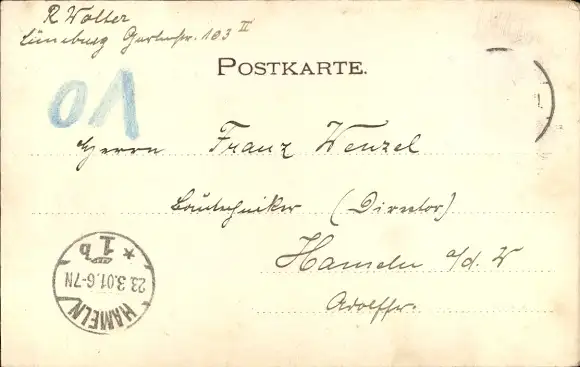 R Wolter
Lüneburg Gartenstr. 103 II
POSTKARTE.
01
Herrn Franz Wenzel
Bautechniker (Director)
Hameln a/d. W
Adolfstr.
HAMELN
23.3.01.6-7N
* 1b